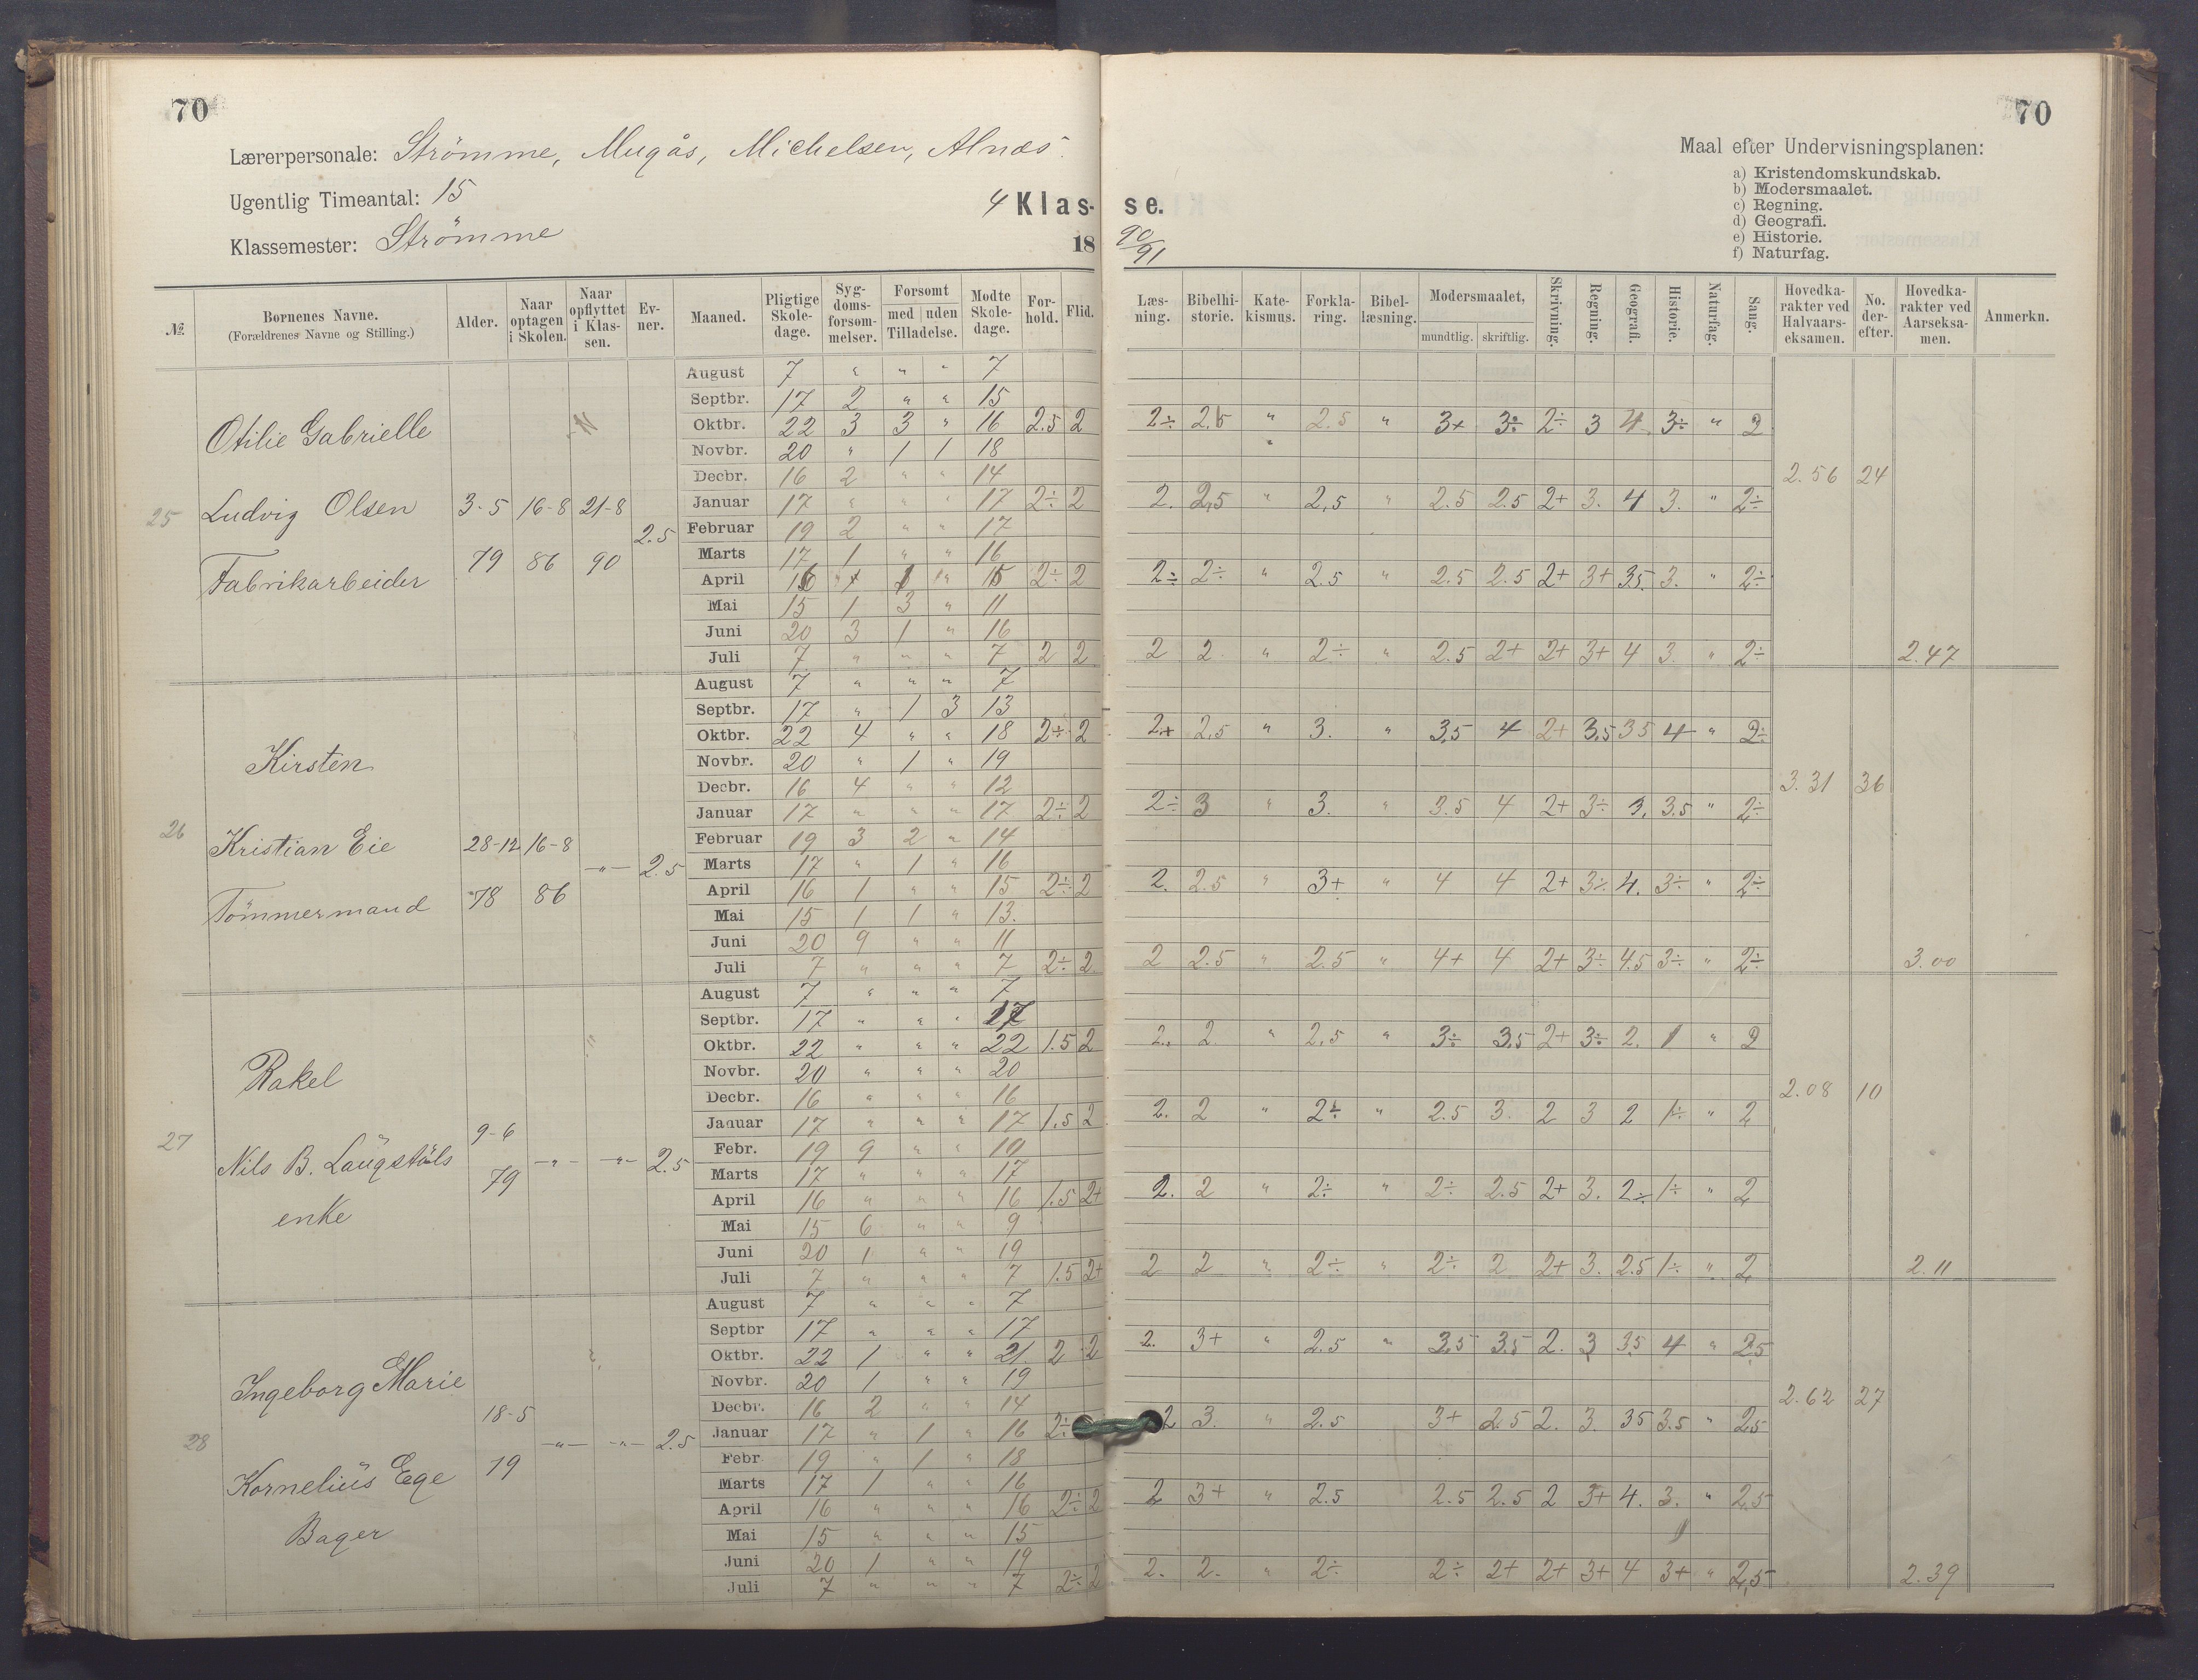 70
70
Lærerpersonale: Strömme, Mugås, Michelsen, Alnæs.
Ugentlig Timeantal: 15
Klassemester: Strömme
4 Klas- se.
18 90/91
Maal efter Undervisningsplanen:
a) Kristendomskundskab.
b) Modersmaalet.
c) Regning.
d) Geografi.
e) Historie.
f) Naturfag.
№ Børnenes Navne. (Forældrenes Navne og Stilling.) Alder. Naar optagen i Skolen. Naar opflyttet i Klassen. Evner. Maaned. Pligtige Skoledage. Sygdomsforsømmelser. Forsømt med uden Tilladelse. Mødte Skoledage. Forhold. Flid. Læsning. Bibelhistorie. Katekismus. Forklaring. Bibellæsning. Modersmaalet, mundtlig. skriftlig. Skrivning. Regning. Geografi. Historie. Naturfag. Sang. Hovedkarakter ved Halvaarseksamen. No. derefter. Hovedkarakter ved Aarseksamen. Anmerkn.
25 Otilie Gabrielle
Ludvig Olsen 3-5 79 16-8 86 21-8 90 2.5
Fabrikarbeider
August 7 " " " 7
Septbr. 17 2 " " 15
Oktbr. 22 3 3 " 16 2.5 2 2÷ 2.5 " 2.5 " 3+ 3÷ 2÷ 3 4 3÷ " 2
Novbr. 20 " 1 1 18
Decbr. 16 2 " " 14 2.56 24
Januar 17 " " " 17 2÷ 2 2. 2,5 " 2,5 " 2.5 2.5 2+ 3. 4 3. " 2÷
Februar 19 2 " " 17
Marts 17 1 " " 16
April 16 " 1 " 15 2÷ 2 2÷ 2÷ " 2.5 " 2.5 2.5 2+ 3+ 35. 3. " 2÷
Mai 15 1 3 " 11
Juni 20 3 1 " 16
Juli 7 " " " 7 2 2 2 2 " 2÷ " 2.5 2+ 2+ 3+ 4 3. " 2÷ 2.47
26 Kirsten
Kristian Eie 28-12 78 16-8 86 -"- 2.5
Tömmermand
August 7 " " " 7
Septbr. 17 " 1 3 13
Oktbr. 22 4 " " 18 2÷ 2 2+ 2,5 " 3. " 3,5 4 2+ 3,5 35 4 " 2÷
Novbr. 20 " 1 " 19
Decbr. 16 4 " " 12 3.31 36
Januar 17 " " " 17 2÷ 2 2÷ 3 " 3. " 3.5 4 2+ 3÷ 3. 3.5 " 2÷
Februar 19 3 2 " 14
Marts 17 " 1 " 16
April 16 1 " " 15 2÷ 2 2. 2.5 " 3+ " 4 4 2+ 3÷ 4. 3÷ " 2÷
Mai 15 1 1 " 13.
Juni 20 9 " " 11
Juli 7 " " " 7 2÷ 2 2 2.5 " 2.5 " 4+ 4 2+ 3÷ 4.5 3÷ " 2÷ 3.00
27 Rakel
Nils B. Laugstöls 9-6 79 -"- -"- 2.5
enke
August 7 " " " 7
Septbr. 17 " " " 17
Oktbr. 22 " " " 22 1.5 2 2. 2. " 2,5 " 3÷ 3,5 2+ 3÷ 2. 1 " 2
Novbr. 20 " " " 20
Decbr. 16 " " " 16 2.08 10
Januar 17 " " " 17 1.5 2 2. 2 " 2÷ " 2.5 3. 2 3 2 1÷ " 2
Febr. 19 9 " " 10
Marts 17 " " " 17
April 16 " " " 16 1.5 2+ 2. 2 " 2÷ " 2÷ 2.5 2+ 3. 2÷ 1÷ " 2
Mai 15 6 " " 9
Juni 20 1 " " 19
Juli 7 " " " 7 1.5 2+ 2 2 " 2÷ " 2÷ 2 2+ 3. 2.5 1÷ " 2 2.11
28 Ingeborg Marie
Kornelius Ege 18-5 79 -"- -"- 2.5
Bager
August 7 " " " 7
Septbr 17 " " " 17
Oktbr. 22 1 " " 21. 2 2 2. 3+ " 2.5 " 3,5 3.5 2. 3 3,5 4 " 2,5
Novbr. 20 1 " " 19
Decbr. 16 2 " " 14 2.62 27
Januar 17 " 1 " 16 2÷ 2 3. " 2.5 3+ 2.5 2. 3. 35 3.5 " 2,5
Febr 19 " 1 " 18
Marts 17 1 " " 16
April 16 " " " 16 2÷ 2 2 3+ " 2.5 2.5 2.5 2 3+ 4. 3. " 2,5
Mai 15 " " " 15
Juni 20 1 " " 19
Juli 7 " " " 7 2÷ 2 2. 2. " 2÷ 2÷ 2+ 2+ 3+ 4 3+ " 2,5 2.39